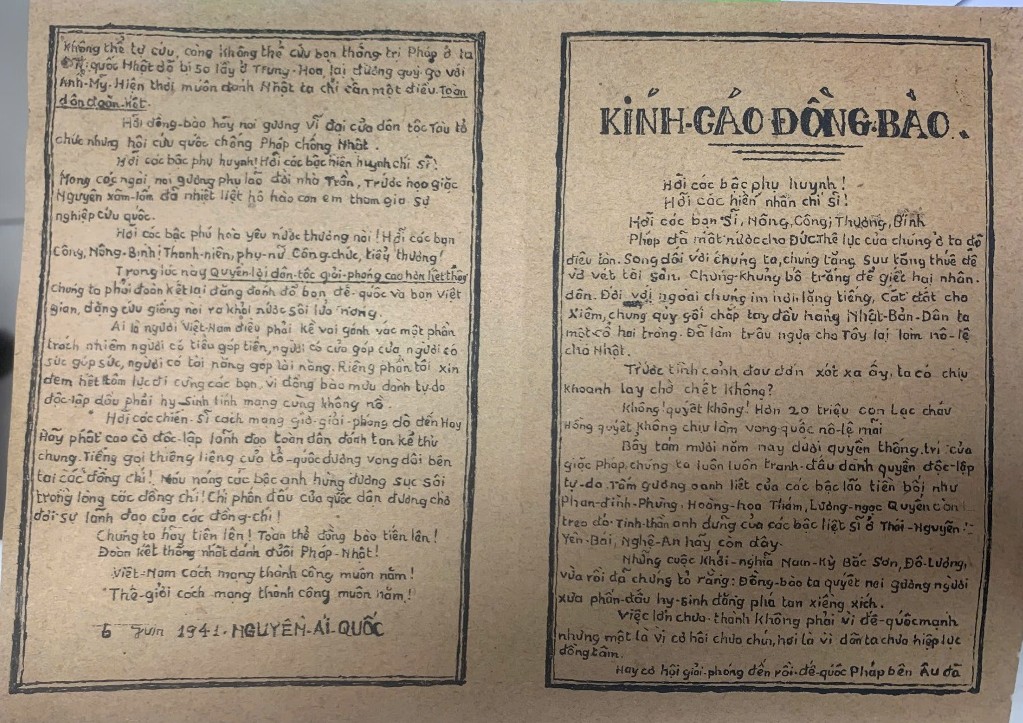 KÍNH-CÁO ĐỒNG-BÀO.
Hỡi các bậc phụ huynh!
Hỡi các hiền nhân chí sĩ!
Hỡi các bạn Sĩ, Nông, Công, Thương, Binh
Pháp đã mất nước cho Đức. Thế lực của chúng ở ta đã
điêu tàn. Song đối với chúng ta, chúng tăng sưu tăng thuế để
vơ vét tài sản. Chúng khủng bố trắng để giết hại nhân-
dân. Đối với ngoài chúng im hơi lặng tiếng, cắt đất cho
Xiêm, chúng quỳ gối chắp tay đầu hàng Nhật-Bản. Dân ta
một cổ hai tròng. Đã làm trâu ngựa cho Tây lại làm nô-lệ
cho Nhật.
Trước tình cảnh đau đớn xót xa ấy, ta có chịu
khoanh tay chờ chết không?
Không quyết không! Hơn 20 triệu con Lạc cháu
Hồng quyết không chịu làm vong quốc nô-lệ mãi
Bẩy tám mươi năm nay dưới quyền thống-trị của
giặc Pháp, chúng ta luôn luôn tranh-đấu dành quyền độc-lập
tự-do. Tấm gương oanh liệt của các bậc lão tiền bối như
Phan-đình-Phùng, Hoàng-hoa Thám, Lương-ngọc Quyến còn
treo đó. Tinh-thần anh dũng của các bậc liệt sĩ ở Thái-Nguyên
Yên-Bái, Nghệ-An hãy còn đây.
Những cuộc Khởi-nghĩa Nam-Kỳ Bắc Sơn, Đô-Lương,
vừa rồi đã chứng tỏ rằng: Đồng-bào ta quyết noi gương người
xưa phấn-đấu hy-sinh đặng phá tan xiềng xích.
Việc lớn chưa thành không phải vì đế-quốc mạnh
nhưng một là vì cơ hội chưa chín, hai là vì dân ta chưa hiệp lực
đồng tâm.
Nay cơ hội giải-phóng đến rồi đế-quốc Pháp bên Âu đã
không thể tự cứu, càng không thể cứu bọn thống trị Pháp ở ta
quốc Nhật đã bị sa lầy ở Trung-Hoa, lại đương quý gọ với
Anh-Mỹ. Hiện thời muốn đánh Nhật ta chỉ cần một điều: Toàn
dân đoàn-kết.
Hỡi đồng-bào hãy noi gương vĩ đại của dân tộc Tàu tổ
chức những hội cứu quốc chống Pháp chống Nhật.
Hỡi các bậc phụ huynh! Hỡi các bậc hiền huynh chí sĩ!
Mong các ngài noi gương phụ lão đời nhà Trần, Trước họa giặc
Nguyên xâm-lấn đã nhiệt liệt hô hào con em tham gia sự
nghiệp cứu quốc.
Hỡi các bậc phú hào yêu nước thương nòi! Hỡi các bạn
Công, Nông-Binh! Thanh-niên, phụ-nữ Công chức, tiểu thương!
Trong lúc này Quyền-lợi dân-tộc giải-phóng cao hơn hết thảy
chúng ta phải đoàn kết lại đặng đánh đổ bọn đế-quốc và bọn Việt
gian, đặng cứu giống nòi ra khỏi nước sôi lửa nóng.
Ai là người Việt-Nam điều phải kề vai gánh vác một phần
trách nhiệm người có tiều góp tiền, người có của góp của, người có
sức góp sức, người có tài năng góp tài năng. Riêng phần tôi xin
đem hết tâm lực đi cùng các bạn, vì đồng bào mưu dành tự-do
độc-lập dầu phải hy-sinh tính mạng cũng không nề.
Hỡi các chiến-Sĩ cách mạng giờ-giải-phóng đã đến Hãy
Hãy phất cao cờ độc-lập lãnh đạo toàn dân đánh tan kẻ thù
chung. Tiếng gọi thiêng liêng của tổ-quốc đương vang dội bên
tai các đồng chí! Máu nóng các bậc anh hùng đương sục sôi
trong lòng các đồng chí! Chí phấn đấu của quốc dân đương chờ
đợi sự lãnh đạo của các đồng-chí!
Chúng ta hãy tiến lên! Toàn thể đồng bào tiến lên!
Đoàn kết thống nhất đánh đuổi Pháp-Nhật!
Việt-Nam cách mạng thành công muôn năm!
Thế-giới cách mạng thành công muôn năm!
6 Juin 1941. NGUYỄN-ÁI-QUỐC